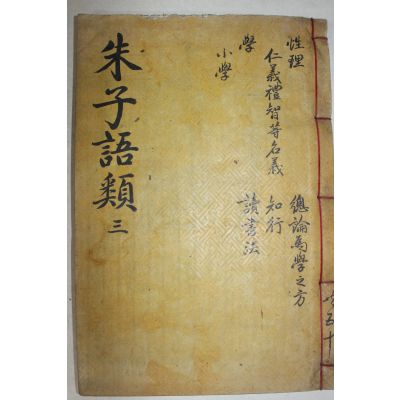 朱子語類 三
性理
仁義禮智等名義
學
小學
總論爲學之方
知行
讀書法
五十